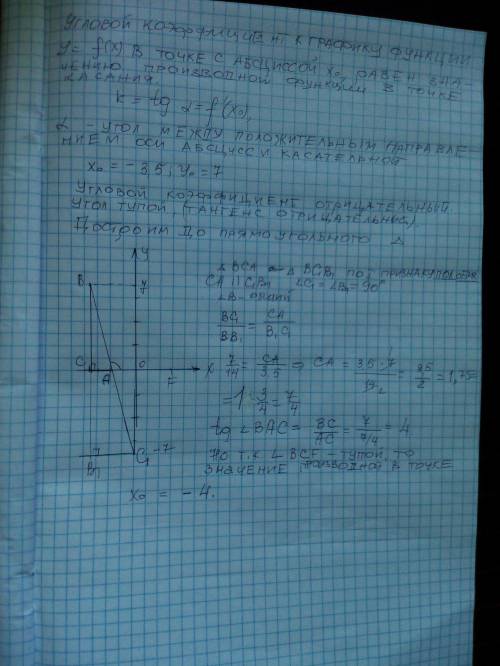 УГЛОВОЙ КОЭФФИЦИЕНТ К ГРАФИКУ ФУНКЦИИ
y = f(x) В ТОЧКЕ С АБСЦИССОЙ x₀ РАВЕН ЗНА-
ЧЕНИЮ ПРОИЗВОДНОЙ ФУНКЦИИ В ТОЧКЕ
КАСАНИЯ
k = tg α = f'(x₀)
α - УГОЛ МЕЖДУ ПОЛОЖИТЕЛЬНЫМ НАПРАВЛЕ-
НИЕМ ОСИ АБСЦИСС И КАСАТЕЛЬНОЙ
x₀ = -3,5, y₀ = 7
УГЛОВОЙ КОЭФФИЦИЕНТ ОТРИЦАТЕЛЬНЫЙ
УГОЛ ТУПОЙ, (ТАНГЕНС ОТРИЦАТЕЛЬНЫЙ)
ПОСТРОИМ ДО ПРЯМОУГОЛЬНОГО Δ
y
B
7
C
A
0
F
x
B₁
C₁ -7
Δ BCA ~ Δ BC₁B₁ ПО ПРИЗНАКУ ПОДОБИЯ
CA || C₁B₁ ∠C₁ = ∠B₁ = 90°
∠B - ОБЩИЙ
BC/BB₁ = CA/B₁C₁
7/14 = CA/3,5 ⇒ CA = 3,5·7/14 = 3,5/2 = 1,75
= 1 3/4 = 7/4
tg ∠BAC = BC/AC = 7/(7/4) = 4
НО Т.К ∠BCF - ТУПОЙ, ТО
ЗНАЧЕНИЕ ПРОИЗВОДНОЙ В ТОЧКЕ
x₀ = -4.